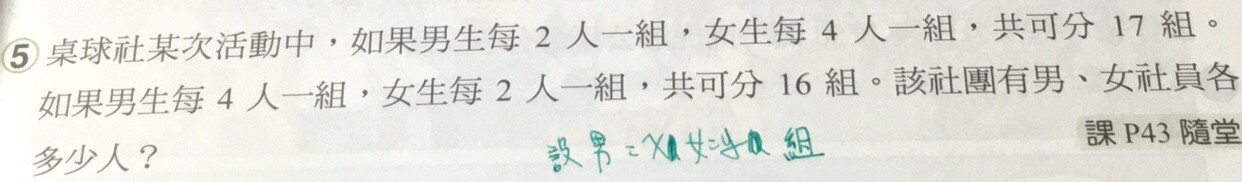 ⑤ 桌球社某次活動中，如果男生每 2 人一組，女生每 4 人一組，共可分 17 組。
如果男生每 4 人一組，女生每 2 人一組，共可分 16 組。該社團有男、女社員各
多少人？
設男=x 女=y 組
課 P43 隨堂